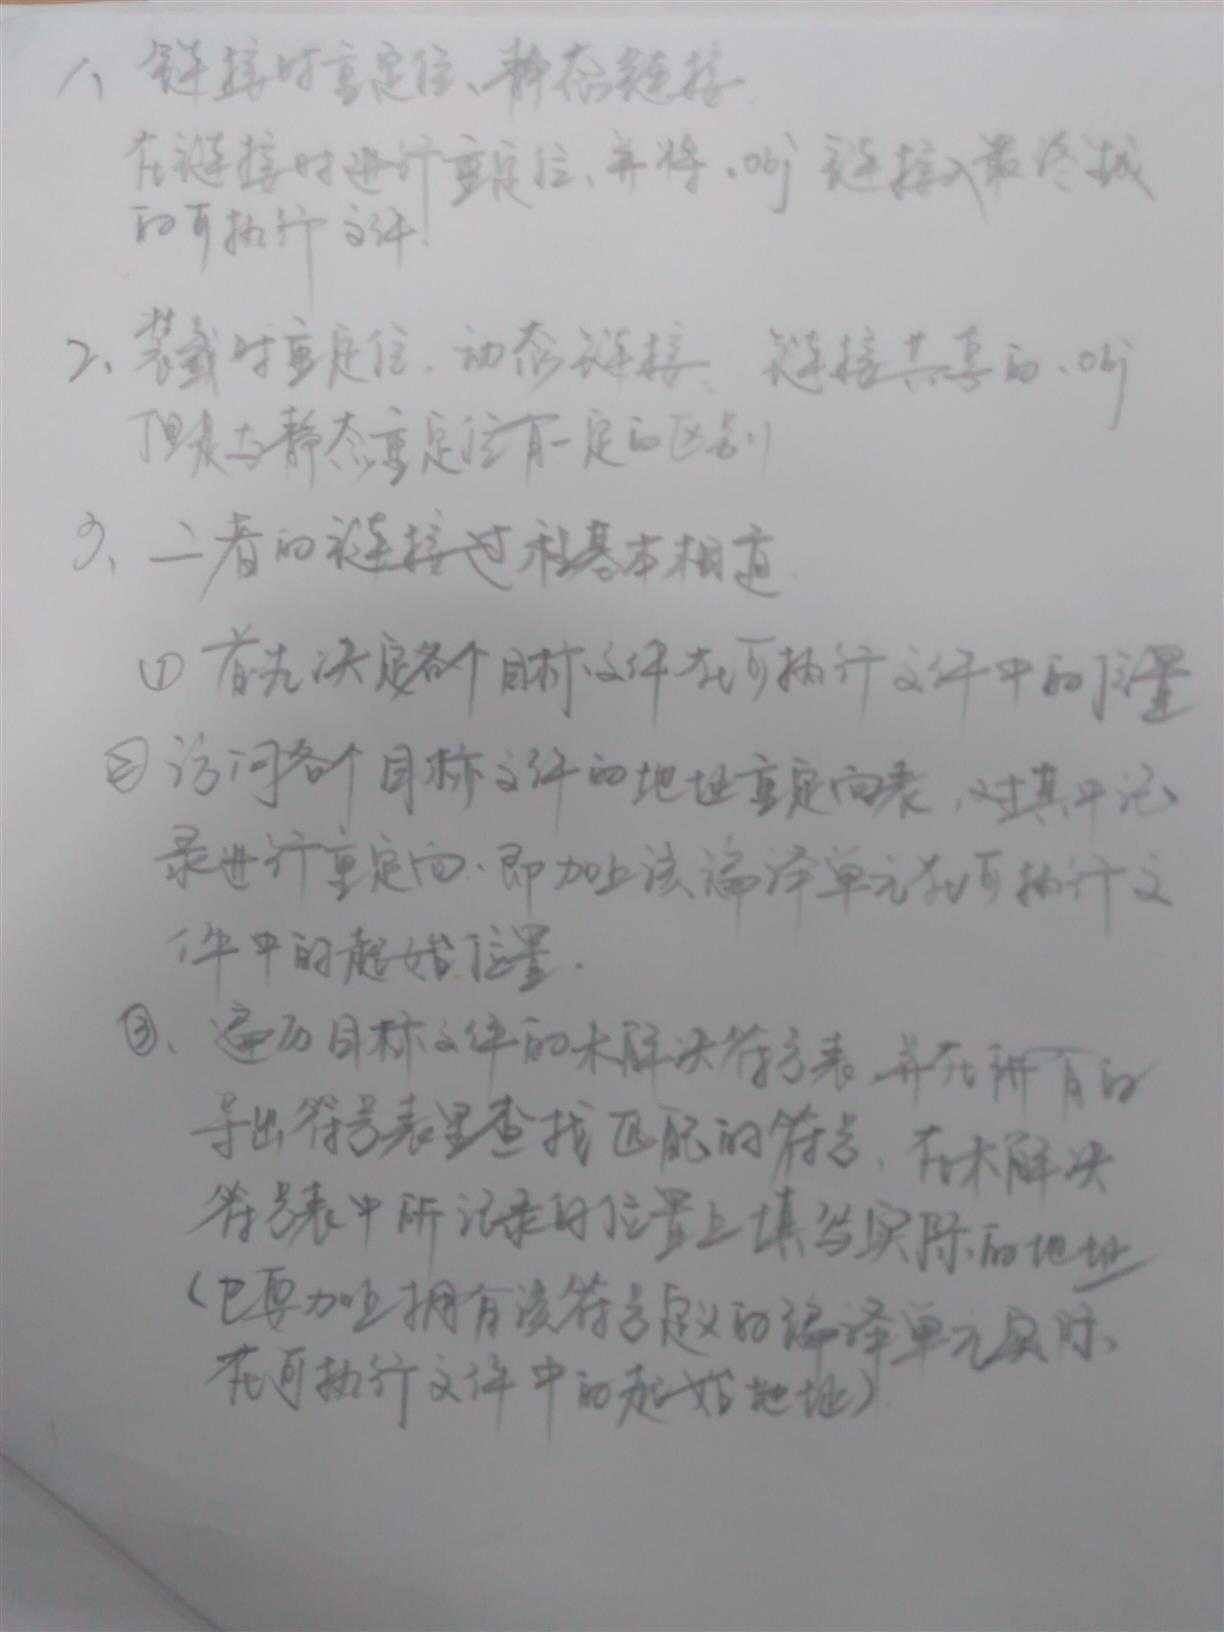 1、链接时重定位、静态链接.
在链接时进行重定位、并将.obj链接入最终
的可执行文件.
2、装载时重定位.动态链接、链接共享的.obj
但是与静态重定位有一定的区别
3、二者的链接过程基本相
① 首先决定各个目标文件在可执行文件中的位置
② 访问各个目标文件的地址重定向表,对其中记
录进行重定向.即加上该编译单元在可执行文
件中的起始位置.
③、遍历目标文件的未解决符号表,并在所有的
导出符号表里查找匹配的符号,在未解决
符号表中所记录的位置上填写实际的地址
(也要加上拥有该符号定义的编译单元实际
在可执行文件中的起始地址)